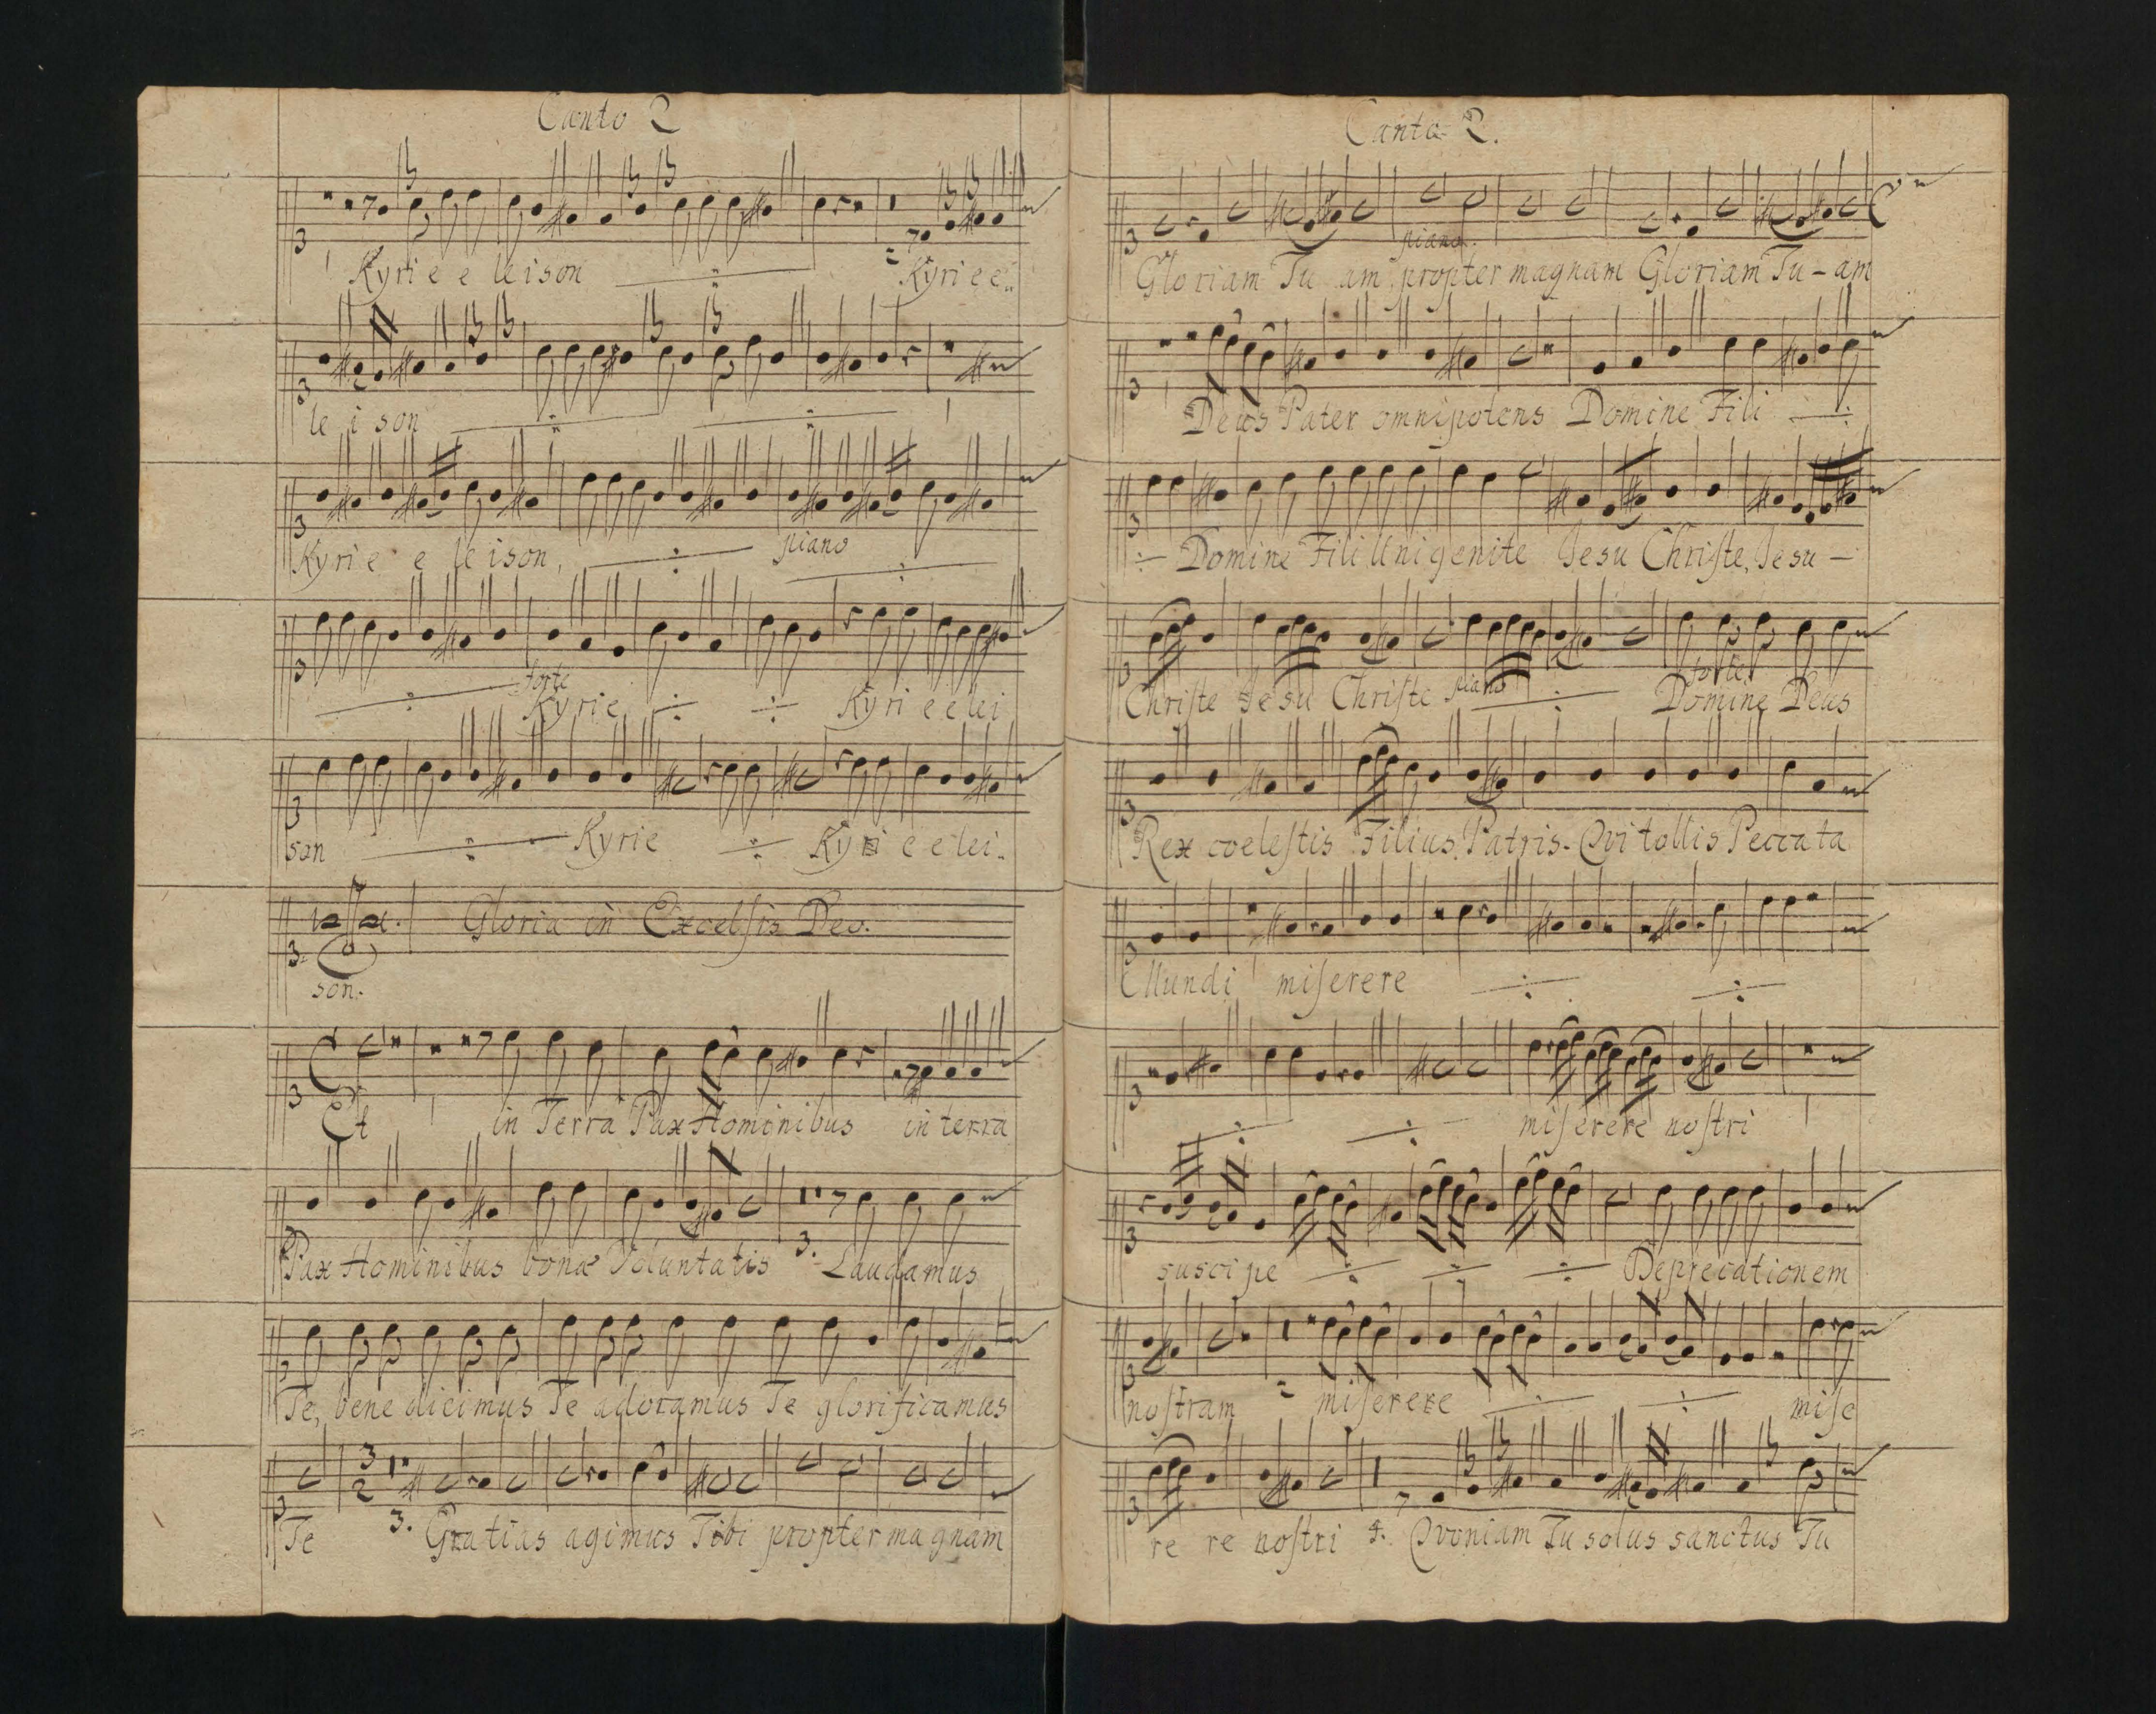 Canto 2
Kyri e e leison Kyri e e
le i son
Kyri e e le ison, piano
forte
Kyrie Kyri e e lei
son Kyrie Kyri e e lei.
Gloria in Excelsis Deo.
son.
Et in Terra Pax Hominibus in terra
Pax Hominibus bonæ Voluntatis 3. Laudamus
Te, bene dicimus Te adoramus Te glorificamus
3
2
Te 3. Gratias agimus Tibi propter magnam
Canto 2.
piano.
Gloriam Tu am propter magnam Gloriam Tu - am
Deus Pater omnipotens Domine Fili
Domine Fili Unigenite Jesu Chriſte, Jesu -
forte.
Chriſte Jesu Chriſte piano Domine Deus
Rex coeleſtis Filius Patris. Qvi tollis Peccata
Mundi miſerere
miſerere noſtri
suscipe Deprecationem
noſtram miſerere miſe
re re noſtri 4. Qvoniam Tu solus sanctus Tu